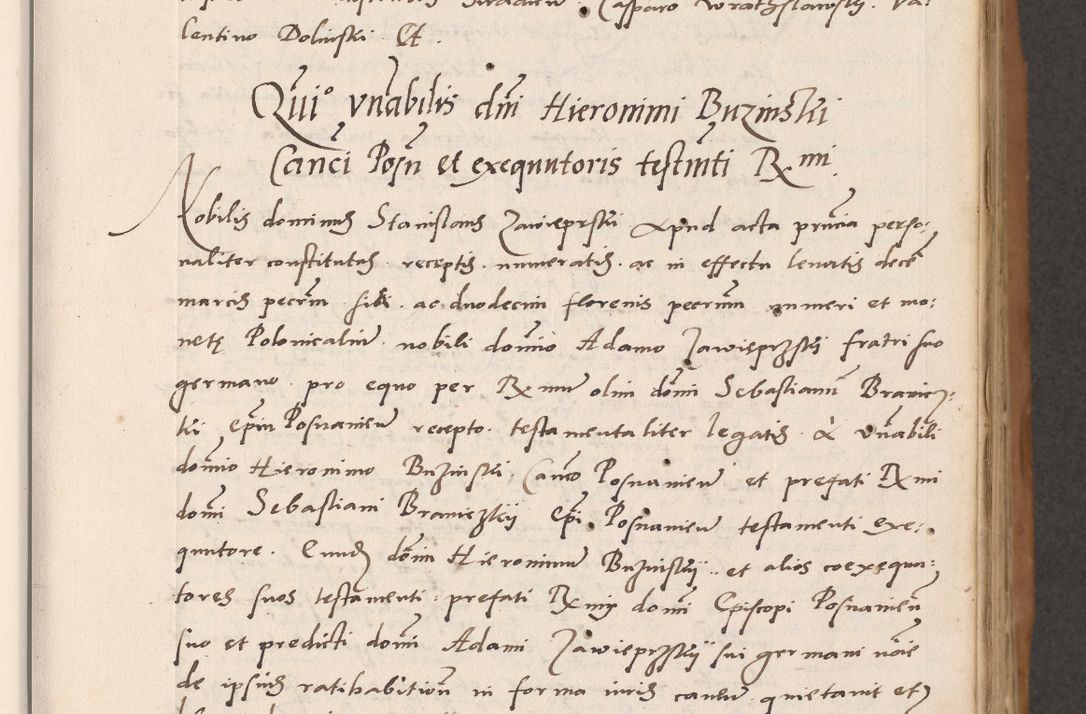 lentino Dolinski. Et.
Quio vnabilis dni Hieronimi Buzinskii
Canci Posn et exequutoris testmti Rmi
Nobilis dominus Stanislaus Zawieprski Apud acta prncia perso:
naliter constitutus receptis numeratis ac in effectu leuatis decē
marcis pecrm sibi ac duodecim florenis pecrum numeri et mo:
netę Polonicaliū nobili domio Adamo Zawieprzskij fratri suo
germano pro equo per Rmum olim domi Sebastianū Branicz:
ki Epm Posnanień recepto testamentaliter legatis A vnabili
domio Hieronimo Buzinski Canco Posnanień et prefati Rmi
domi Sebastiani Braniczkij Epi Posnanień testamenti exe:
quutore. Eundē domm Hieronimū Buzinskij et alios coexequu:
tores suos testamenti prefati Rmi domi Episcopi Posnanień
suo et predicti domi Adami Zawieprzskij sui germani noīe
de ipsius ratihabitioñ in forma iuris cauēn quietauit et